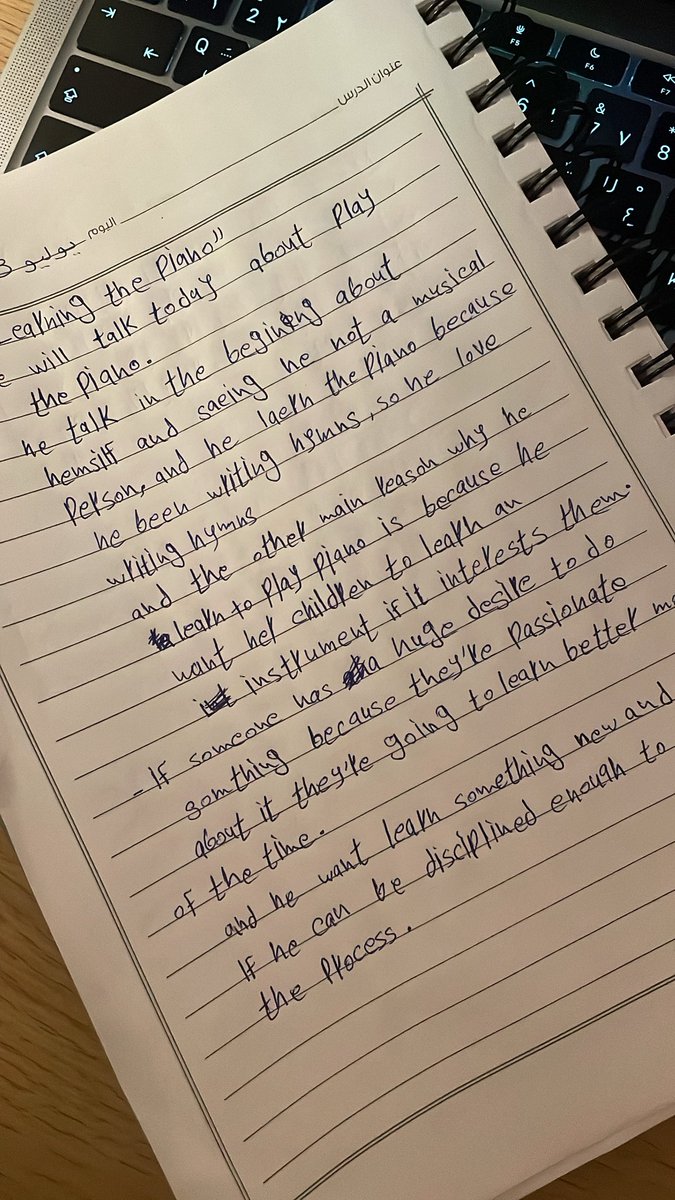 عنوان الدرس
اليوم
يوليو 3
Learning the Piano"
will talk today about play
the piano.
he talk in the begining about
hemsilf and saeing he not a musical
Person, and he laern the Piano because
he been writing hymns, so he love
writing hymns
and the other main reason why he
learn to play piano is because he
want her children to learn an
instrument if it interests them.
-If someone has a huge desire to do
somthing because they're passionate
about it they're going to learn better
of the time.
and he want learn something new and
If he can be disciplined enough to
the process.
Q
2
F5
F6
F7
6
&
7 ٧
*
8